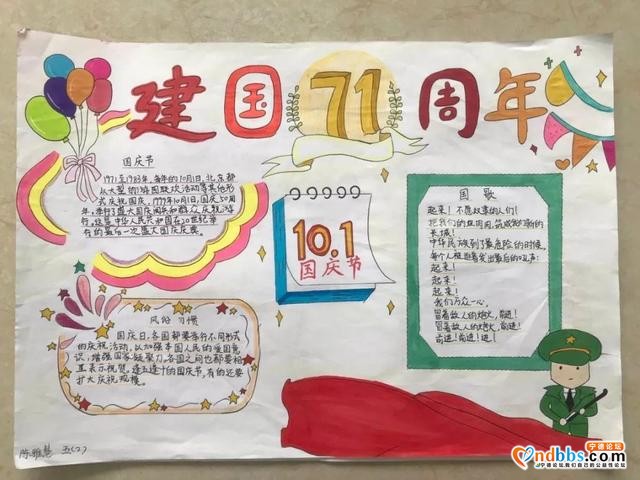 建国71周年
国庆节
1971至1983年,每年的10月1日,北京都
以大型的游园联欢活动等其他形
式庆祝国庆,1999年10月1日,国庆50周
年,举行了盛大国庆阅兵和群众庆祝游
行。这是中华人民共和国在20世纪举
行的最后一次盛大国庆庆典。
10.1
国庆节
国歌
起来!不愿奴隶的人们!
把我们的血肉,筑成我们新的
长城!
中华民族到了最危险的时候
每个人被迫着发出最后的吼声:
起来!
起来!
起来!
我们万众一心,
冒着敌人的炮火,前进!
冒着敌人的炮火,前进!
前进!前进!进!
风俗习惯
国庆日,各国都要举行不同形式
的庆祝活动,以加强本国人民的爱国意
识,增强国家凝聚力。各国之间也都要相
互表示祝贺。逢五逢十的国庆节,有的还要
扩大庆祝规模。
陈雅慧 五(2)
宁德论坛
ndbbs.com
宁德论坛,我们自己的公益性论坛